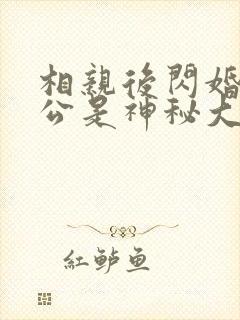 相親後閃婚
公是神秘大
紅鲈鱼